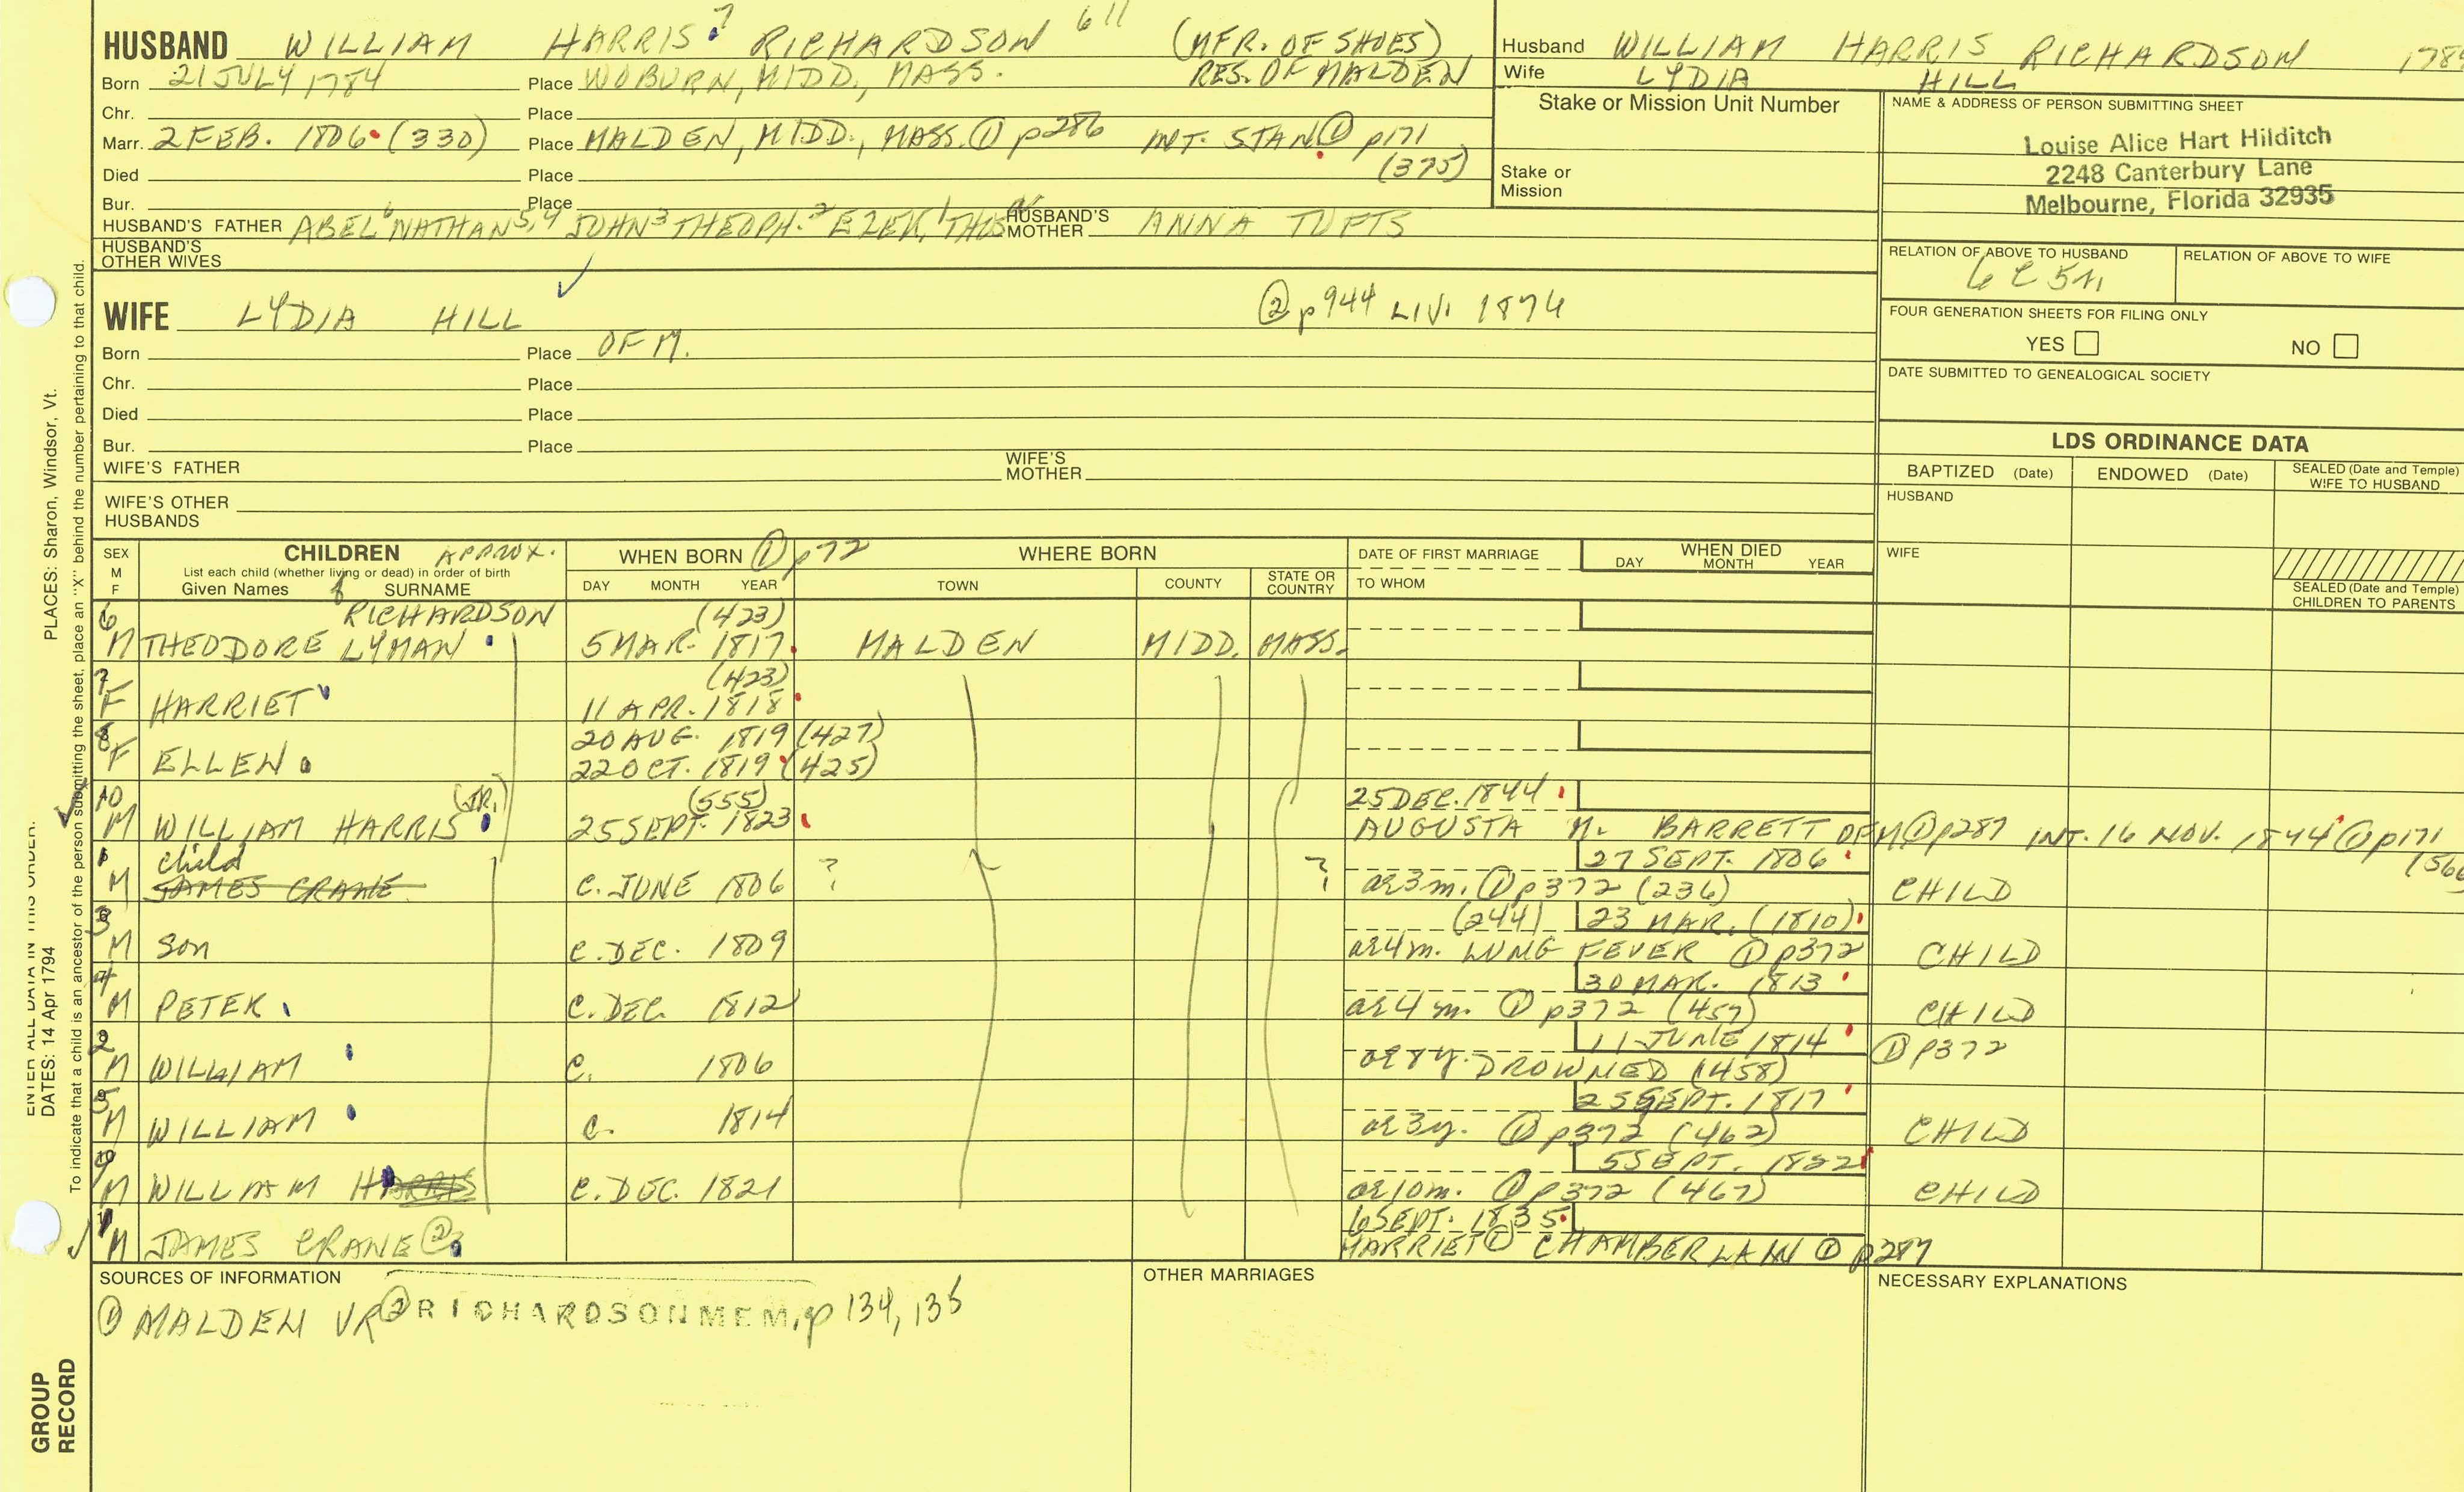 HUSBAND WILLIAM HARRIS 7 RICHARDSON 611 (MFR. OF SHOES)
Born 21 JULY 1784 Place WOBURN, MIDD., MASS. RES. OF MALDEN
Chr. Place
Marr. 2 FEB. 1806 (330) Place MALDEN, MIDD., MASS. ① p286 INT. STAN ① p171
(375)
Died Place
Bur. Place
HUSBAND'S FATHER ABEL 6 NATHAN 5,4 JOHN 3 THEOPH. 2 EZEK. 1 HUSBAND'S MOTHER ANNA TUFTS
HUSBAND'S OTHER WIVES
WIFE LYDIA HILL ② p944 LIV. 1874
Born Place OF M.
Chr. Place
Died Place
Bur. Place
WIFE'S FATHER WIFE'S MOTHER
WIFE'S OTHER HUSBANDS
Husband WILLIAM HARRIS RICHARDSON
Wife LYDIA HILL
Stake or Mission Unit Number
Stake or Mission
NAME & ADDRESS OF PERSON SUBMITTING SHEET
Louise Alice Hart Hilditch
2248 Canterbury Lane
Melbourne, Florida 32935
RELATION OF ABOVE TO HUSBAND RELATION OF ABOVE TO WIFE
6 C 5
FOUR GENERATION SHEETS FOR FILING ONLY
YES NO
DATE SUBMITTED TO GENEALOGICAL SOCIETY
LDS ORDINANCE DATA
BAPTIZED (Date) ENDOWED (Date) SEALED (Date and Temple) WIFE TO HUSBAND
HUSBAND
WIFE
SEALED (Date and Temple) CHILDREN TO PARENTS
SEX M F
CHILDREN APPROX.
List each child (whether living or dead) in order of birth
Given Names SURNAME
WHEN BORN ① p72
DAY MONTH YEAR
WHERE BORN
TOWN COUNTY STATE OR COUNTRY
DATE OF FIRST MARRIAGE
TO WHOM
WHEN DIED
DAY MONTH YEAR
6 RICHARDSON (423)
M THEODORE LYMAN 5 MAR. 1817 MALDEN MIDD. MASS.
7 (423)
F HARRIET 11 APR. 1818
8 20 AUG. 1819 (427)
F ELLEN 22 OCT. 1819 (425)
10 (JR.) (555) 25 DEC. 1844
M WILLIAM HARRIS 25 SEPT. 1823 AUGUSTA M. BARRETT OF M ① p287 INT. 16 NOV. 1844 ① p171
Child 27 SEPT. 1806
M JAMES CRANE C. JUNE 1806 ? ? ae 3m. ① p372 (236) CHILD
3 (244) 23 MAR. (1810)
M Son C. DEC. 1809 ae 4m. LUNG FEVER ① p372 CHILD
4 30 MAR. 1813
M PETER C. DEC. 1812 ae 4 m. ① p372 (457) CHILD
2 11 JUNE 1814 ① p372
M WILLIAM C. 1806 ae 8y. DROWNED (458)
5 25 SEPT. 1817
M WILLIAM C. 1814 ae 3y. ① p372 (462) CHILD
5 SEPT. 1822
M WILLIAM HARRIS C. DEC. 1821 ae 10m. ① p372 (467) CHILD
6 SEPT. 1835
M JAMES CRANE ② HARRIET CHAMBERLAIN ① p287
SOURCES OF INFORMATION OTHER MARRIAGES NECESSARY EXPLANATIONS
① MALDEN VR ② RICHARDSON MEM, p 134, 135
PLACES: Sharon, Windsor, Vt.
ENTER ALL DATA IN THIS ORDER:
DATES: 14 Apr 1794
To indicate that a child is an ancestor of the person submitting the sheet, place an "X" behind the number pertaining to that child.
GROUP RECORD